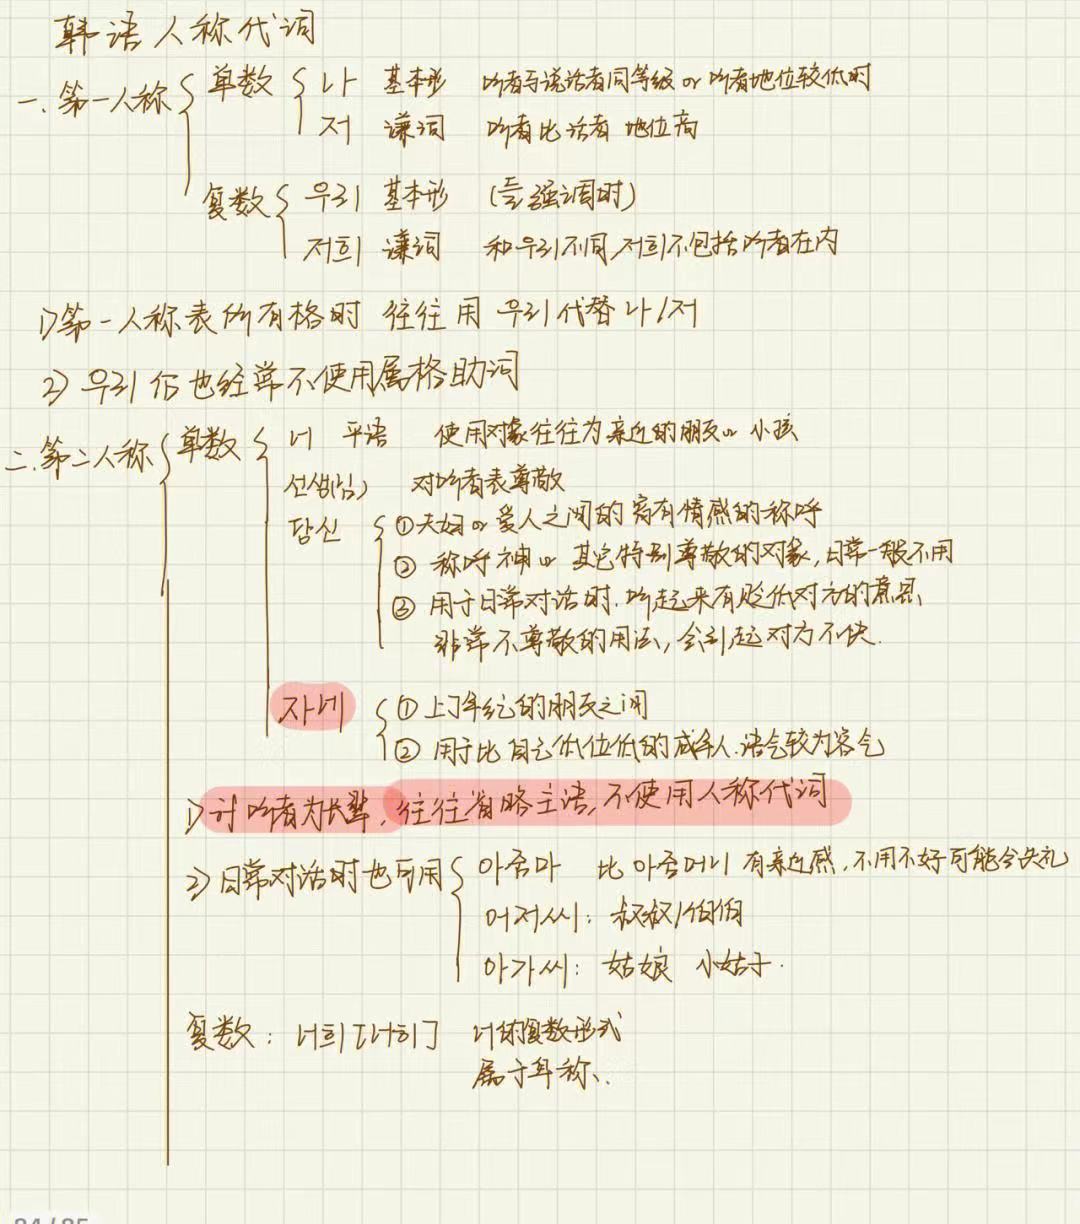 韩语人称代词
一.第一人称 单数 나 基本形 听者与说话者同等级 or 听者地位较低时
저 谦词 听者比话者 地位高
复数 우리 基本形 (言强调时)
저희 谦词 和우리不同,저희不包括听者在内
1)第一人称表所有格时 往往用 우리代替나/저
2) 우리后也经常不使用属格助词
二.第二人称 单数 너 平语 使用对象往往为亲近的朋友or 小孩
선생(님) 对听者表尊敬
당신 ①夫妇or爱人之间的富有情感的称呼
② 称呼神or 其它特别尊敬的对象,日常一般不用
③ 用于日常对话时.听起来有贬低对方的意思
非常不尊敬的用法,会引起对方不快.
자네 ①上了年纪的朋友之间
② 用于比自己低位低的成年人.语气较为客气
1) 听者为长辈,往往省略主语,不使用人称代词
2)日常对话时也可用 아줌마 比 아줌머니 有亲近感,不用不好可能会失礼
어저씨: 叔叔/伯伯
아가씨: 姑娘 小姑子.
复数: 너희[너히] 너的复数形式
属于耳称、